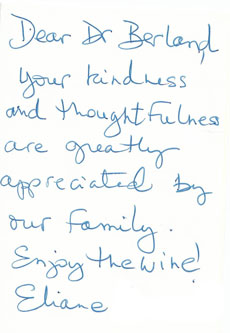 Dear Dr Berland,
Your kindness
and thoughtfulness
are greatly
appreciated by
our family.
Enjoy the wine!
Eliane